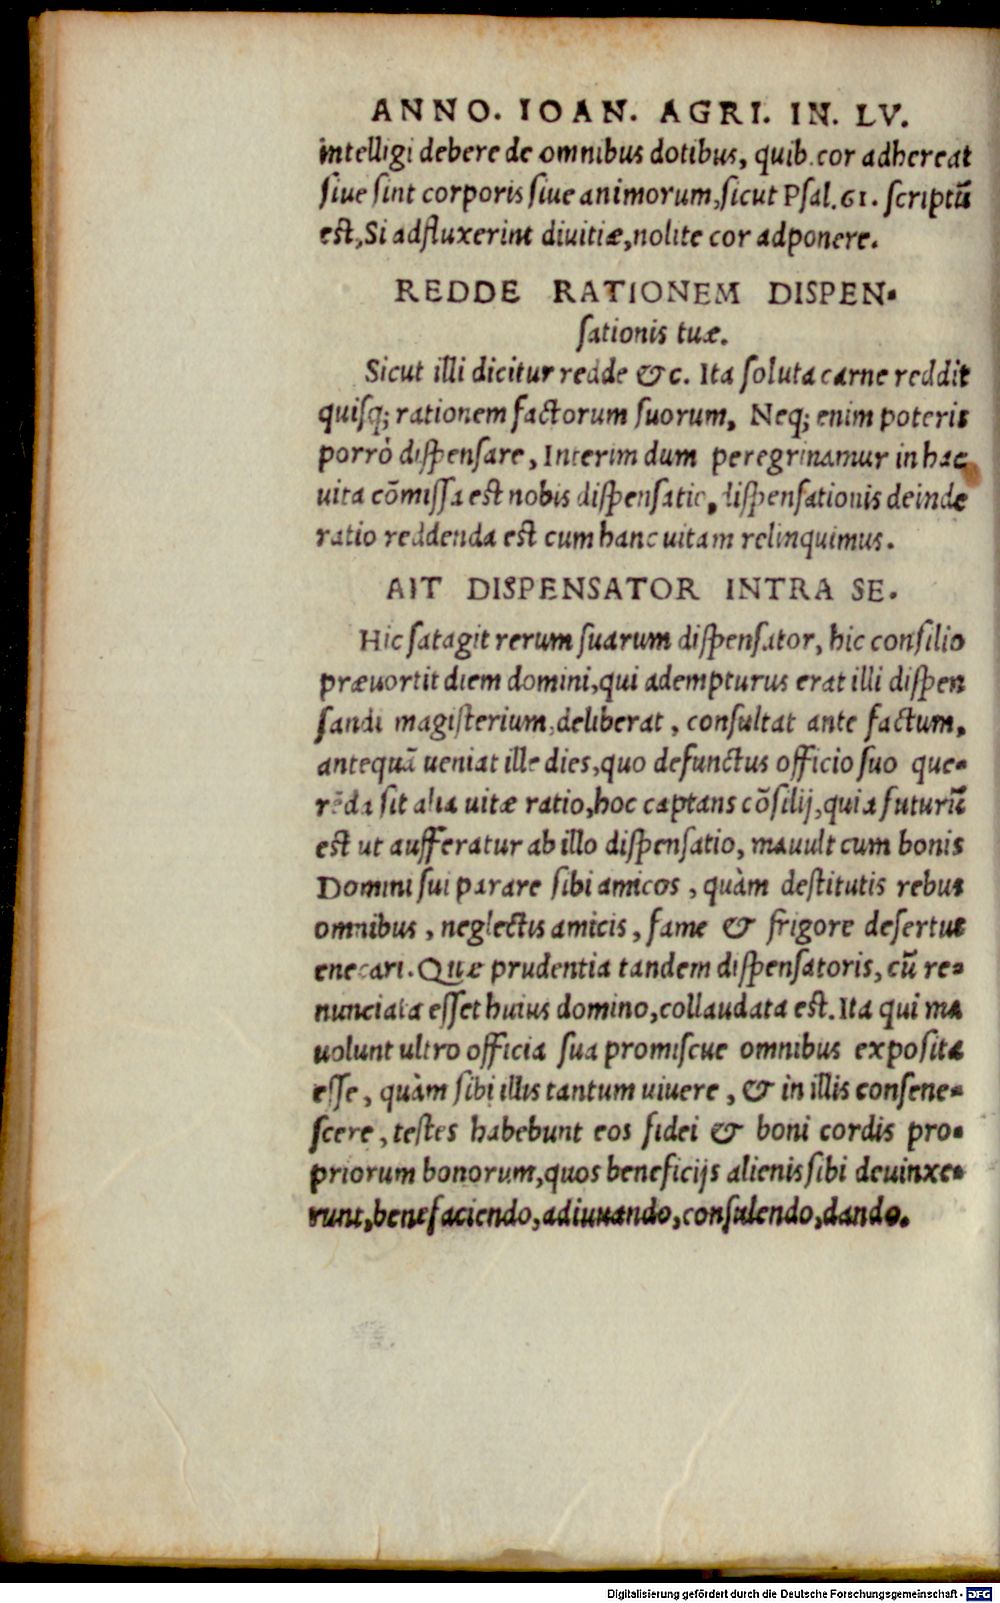 ANNO. IOAN. AGRI. IN. LV.
intelligi debere de omnibus dotibus, quib. cor adhereat
siue sint corporis siue animorum, sicut Psal. 61. scriptū
est, Si adfluxerint diuitiæ, nolite cor adponere.
REDDE RATIONEM DISPEN-
sationis tuæ.
Sicut illi dicitur redde &c. Ita soluta carne reddit
quisq; rationem factorum suorum, Neq; enim poteris
porrò dispensare, Interim dum peregrinamur in hac
uita cōmissa est nobis dispensatio, dispensationis deinde
ratio reddenda est cum hanc uitam relinquimus.
AIT DISPENSATOR INTRA SE.
Hic satagit rerum suarum dispensator, hic consilio
præuortit diem domini, qui adempturus erat illi dispen
sandi magisterium, deliberat, consultat ante factum,
antequā ueniat ille dies, quo defunctus officio suo que-
rēda sit alia uitæ ratio, hoc captans cōsilij, quia futurū
est ut aufferatur ab illo dispensatio, mauult cum bonis
Domini sui parare sibi amicos, quàm destitutis rebus
omnibus, neglectis amicis, fame & frigore desertus
enecari. Quæ prudentia tandem dispensatoris, cū re-
nunciata esset huius domino, collaudata est. Ita qui ma
uolunt ultro officia sua promiscue omnibus exposita
esse, quàm sibi illis tantum uiuere, & in illis consene-
scere, testes habebunt eos fidei & boni cordis pro-
priorum bonorum, quos beneficijs alienis sibi deuinxe-
runt, benefaciendo, adiuuando, consulendo, dando.
Digitalisierung gefördert durch die Deutsche Forschungsgemeinschaft - DFG